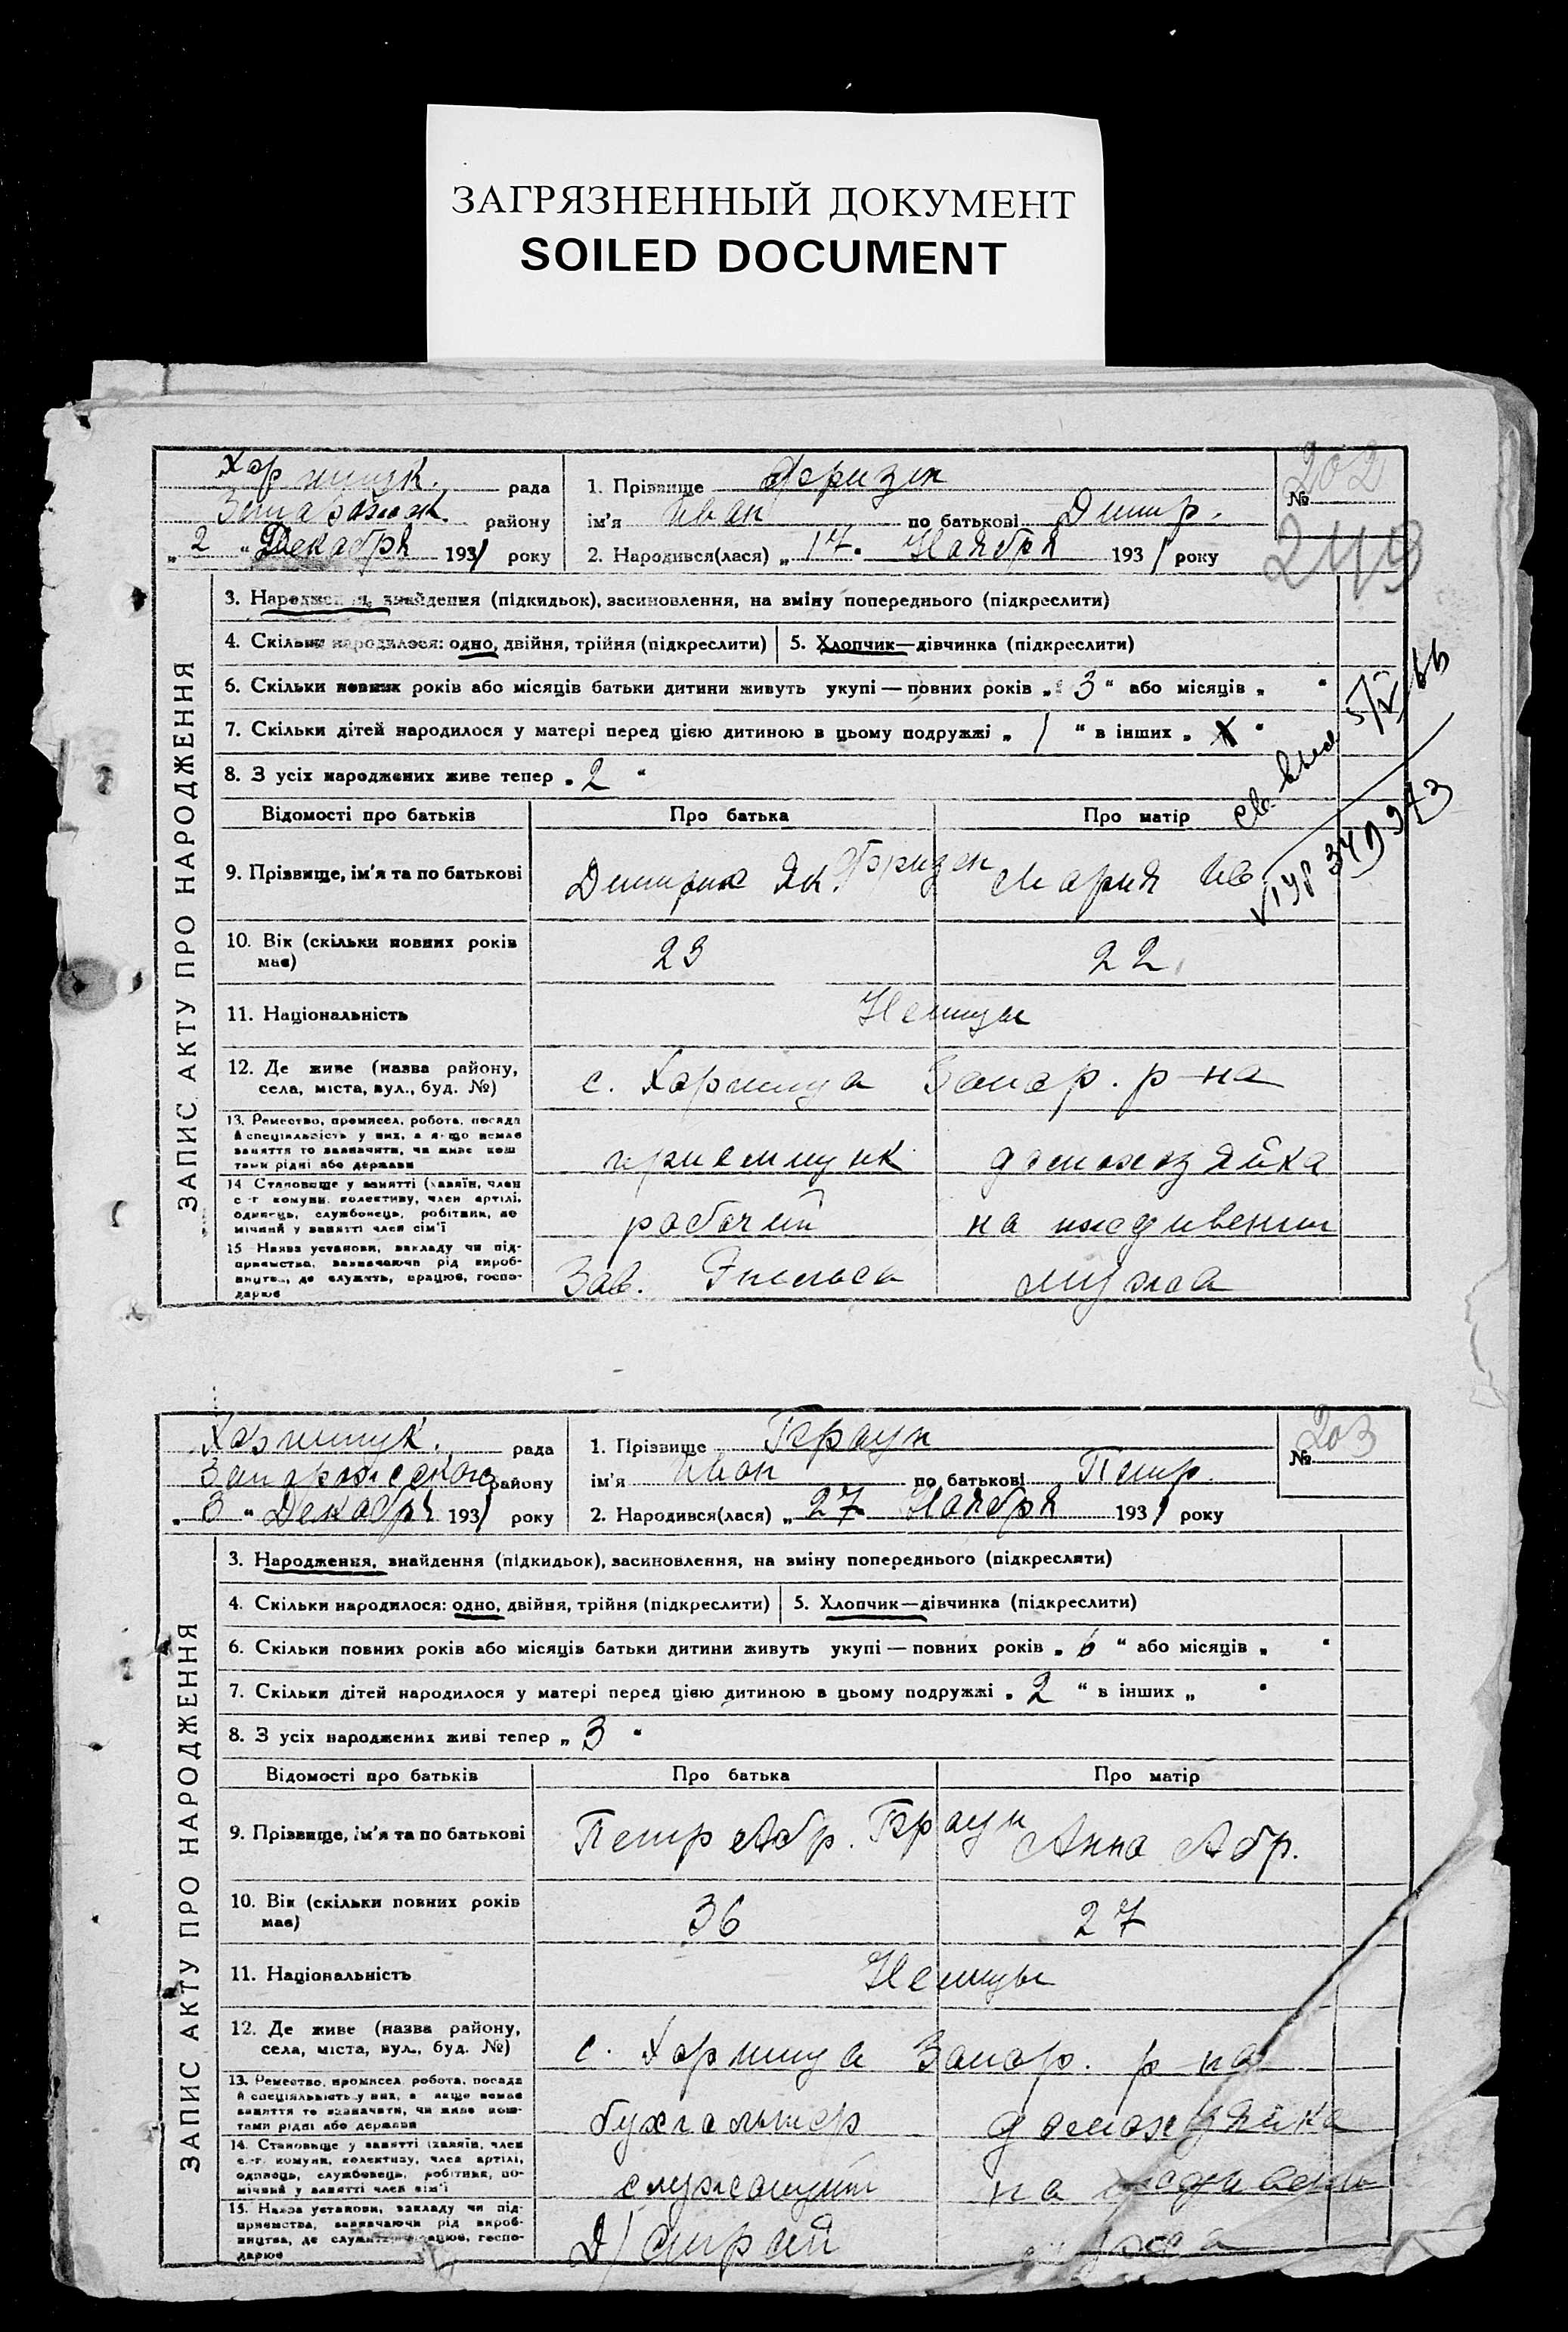 ЗАГРЯЗНЕННЫЙ ДОКУМЕНТ
SOILED DOCUMENT
ЗАПИС АКТУ ПРО НАРОДЖЕННЯ
Хортицк. рада
Запорож. району
„ 2 “ Декабря 1931 року
1. Прізвище Фризен
ім'я Иван по батькові Дмитр.
2. Народився(лася) „ 17. Ноября 1931 року
№ 202
249
3. Народження, знайдення (підкидьок), засиновлення, на зміну попереднього (підкреслити)
4. Скільки народилося: одно, двійня, трійня (підкреслити) 5. Хлопчик—дівчинка (підкреслити)
6. Скільки повних років або місяців батьки дитини живуть укупі — повних років „ 3 “ або місяців „ “
7. Скільки дітей народилося у матері перед цією дитиною в цьому подружжі „ 1 “ в інших „ х “
8. З усіх народжених живе тепер „ 2 “
Відомості про батьків Про батька Про матір
9. Прізвище, ім'я та по батькові Дмитрий Як. Фризен Мария Ив.
10. Вік (скільки повних років має) 23 22
11. Національність Немцы
12. Де живе (назва району, села, міста, вул., буд. №) с. Хортица Запор. р-на
13. Ремество, промисел, робота, посада й спеціяльність у них, а якщо немає заняття то зазначити, чи живе кош тами рідні або держави приемщик домохозяйка
14 Становище у занятті (хазяїн, член с.-г. комуни, колективу, член артілі, одинець, службовець, робітник, по мічний у занятті член сім'ї рабочий на иждивении
15 Назва установи, закладу чи підприємства, зазначаючи рід виробництва, де служить, працює, господарює Зав. Энгельса мужа
Св. выд 5/V 66
ІУР 349973
ЗАПИС АКТУ ПРО НАРОДЖЕННЯ
Хортицк. рада
Запорожского району
„ 3 “ Декабря 1931 року
1. Прізвище Браун
ім'я Иван по батькові Петр.
2. Народився(лася) „ 27 Ноября 1931 року
№ 203
3. Народження, знайдення (підкидьок), засиновлення, на зміну попереднього (підкреслити)
4. Скільки народилося: одно, двійня, трійня (підкреслити) 5. Хлопчик—дівчинка (підкреслити)
6. Скільки повних років або місяців батьки дитини живуть укупі — повних років „ 6 “ або місяців „ “
7. Скільки дітей народилося у матері перед цією дитиною в цьому подружжі „ 2 “ в інших „ “
8. З усіх народжених живі тепер „ 3 “
Відомості про батьків Про батька Про матір
9. Прізвище, ім'я та по батькові Петр Абр. Браун Анна Абр.
10. Вік (скільки повних років має) 36 27
11. Національність Немцы
12. Де живе (назва району, села, міста, вул., буд. №) с. Хортица Запор. р-на
13. Ремество, промисел, робота, посада й спеціяльність у них, а якщо немає заняття то зазначити, чи живе коштами рідні або держави бухгальтер домохозяйка
14. Становище у занятті (хазяїн, член с.-г. комуни, колективу, член артілі, одинець, службовець, робітник, помічний у занятті член сім'ї служащий на иждивении
15. Назва установи, закладу чи підприємства, зазначаючи рід виробництва, де служить, працює, господарює мужа